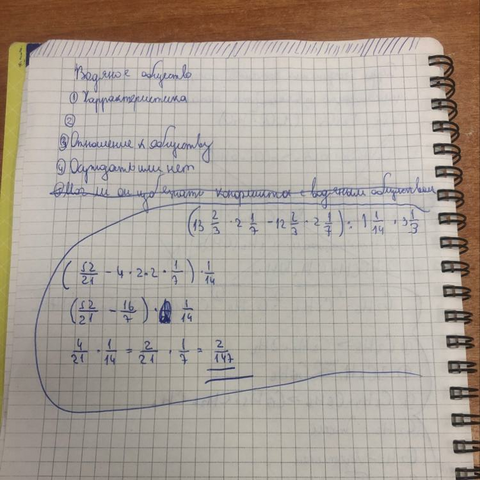 Водяное общество
① Харрактеристика
②
③ Отношение к обществу
④ Осуждать или нет
конфликты с водяным обществом
(13 2/3 · 2 1/7 - 12 2/3 · 2 1/7) : 1 1/14 · 3 1/3
(52/21 - 4 · 2 · 2 · 1/7) · 1/14
(52/21 - 16/7) · 1/14
4/21 · 1/14 = 2/21 · 1/7 = 2/147